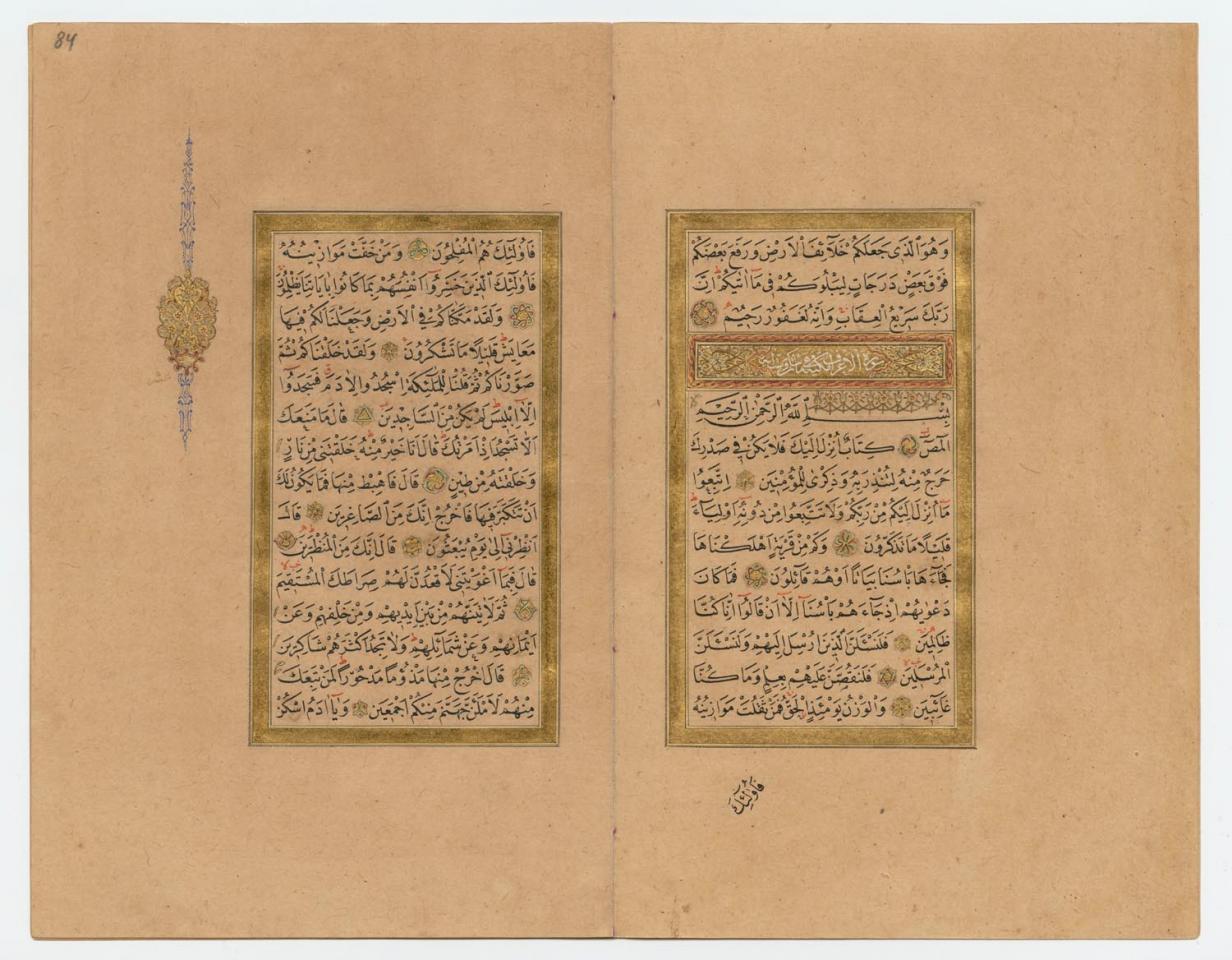 وَهُوَ الَّذِى جَعَلَكُمْ خَلَائِفَ الْاَرْضِ وَرَفَعَ بَعْضَكُمْ
فَوْقَ بَعْضٍ دَرَجَاتٍ لِيَبْلُوَكُمْ فِى مَا اٰتٰيكُمْ اِنَّ
رَبَّكَ سَرِيعُ الْعِقَابِ وَاِنَّهُ لَغَفُورٌ رَحِيمٌ
سورة الاعراف
بِسْمِ اللّٰهِ الرَّحْمٰنِ الرَّحِيمِ
الٓمٓصٓ كِتَابٌ اُنْزِلَ اِلَيْكَ فَلَا يَكُنْ فِى صَدْرِكَ
حَرَجٌ مِنْهُ لِتُنْذِرَ بِهِ وَذِكْرٰى لِلْمُؤْمِنِينَ اِتَّبِعُوا
مَا اُنْزِلَ اِلَيْكُمْ مِنْ رَبِّكُمْ وَلَا تَتَّبِعُوا مِنْ دُونِهِ اَوْلِيَاءَ
قَلِيلًا مَا تَذَكَّرُونَ وَكَمْ مِنْ قَرْيَةٍ اَهْلَكْنَاهَا
فَجَاءَهَا بَاْسُنَا بَيَاتًا اَوْ هُمْ قَائِلُونَ فَمَا كَانَ
دَعْوٰيهُمْ اِذْ جَاءَهُمْ بَاْسُنَا اِلَّا اَنْ قَالُوا اِنَّا كُنَّا
ظَالِمِينَ فَلَنَسْئَلَنَّ الَّذِينَ اُرْسِلَ اِلَيْهِمْ وَلَنَسْئَلَنَّ
الْمُرْسَلِينَ فَلَنَقُصَّنَّ عَلَيْهِمْ بِعِلْمٍ وَمَا كُنَّا
غَائِبِينَ وَالْوَزْنُ يَوْمَئِذٍ الْحَقُّ فَمَنْ ثَقُلَتْ مَوَازِينُهُ
فَاُولٰئِكَ
84
فَاُولٰئِكَ هُمُ الْمُفْلِحُونَ وَمَنْ خَفَّتْ مَوَازِينُهُ
فَاُولٰئِكَ الَّذِينَ خَسِرُوا اَنْفُسَهُمْ بِمَا كَانُوا بِاٰيَاتِنَا يَظْلِمُونَ
وَلَقَدْ مَكَّنَّاكُمْ فِى الْاَرْضِ وَجَعَلْنَا لَكُمْ فِيهَا
مَعَايِشَ قَلِيلًا مَا تَشْكُرُونَ وَلَقَدْ خَلَقْنَاكُمْ ثُمَّ
صَوَّرْنَاكُمْ ثُمَّ قُلْنَا لِلْمَلٰئِكَةِ اسْجُدُوا لِاٰدَمَ فَسَجَدُوا
اِلَّا اِبْلِيسَ لَمْ يَكُنْ مِنَ السَّاجِدِينَ قَالَ مَا مَنَعَكَ
اَلَّا تَسْجُدَ اِذْ اَمَرْتُكَ قَالَ اَنَا خَيْرٌ مِنْهُ خَلَقْتَنِى مِنْ نَارٍ
وَخَلَقْتَهُ مِنْ طِينٍ قَالَ فَاهْبِطْ مِنْهَا فَمَا يَكُونُ لَكَ
اَنْ تَتَكَبَّرَ فِيهَا فَاخْرُجْ اِنَّكَ مِنَ الصَّاغِرِينَ قَالَ
اَنْظِرْنِى اِلٰى يَوْمِ يُبْعَثُونَ قَالَ اِنَّكَ مِنَ الْمُنْظَرِينَ
قَالَ فَبِمَا اَغْوَيْتَنِى لَاَقْعُدَنَّ لَهُمْ صِرَاطَكَ الْمُسْتَقِيمَ
ثُمَّ لَاٰتِيَنَّهُمْ مِنْ بَيْنِ اَيْدِيهِمْ وَمِنْ خَلْفِهِمْ وَعَنْ
اَيْمَانِهِمْ وَعَنْ شَمَائِلِهِمْ وَلَا تَجِدُ اَكْثَرَهُمْ شَاكِرِينَ
قَالَ اخْرُجْ مِنْهَا مَذْؤُمًا مَدْحُورًا لَمَنْ تَبِعَكَ
مِنْهُمْ لَاَمْلَئَنَّ جَهَنَّمَ مِنْكُمْ اَجْمَعِينَ وَيَا اٰدَمُ اسْكُنْ